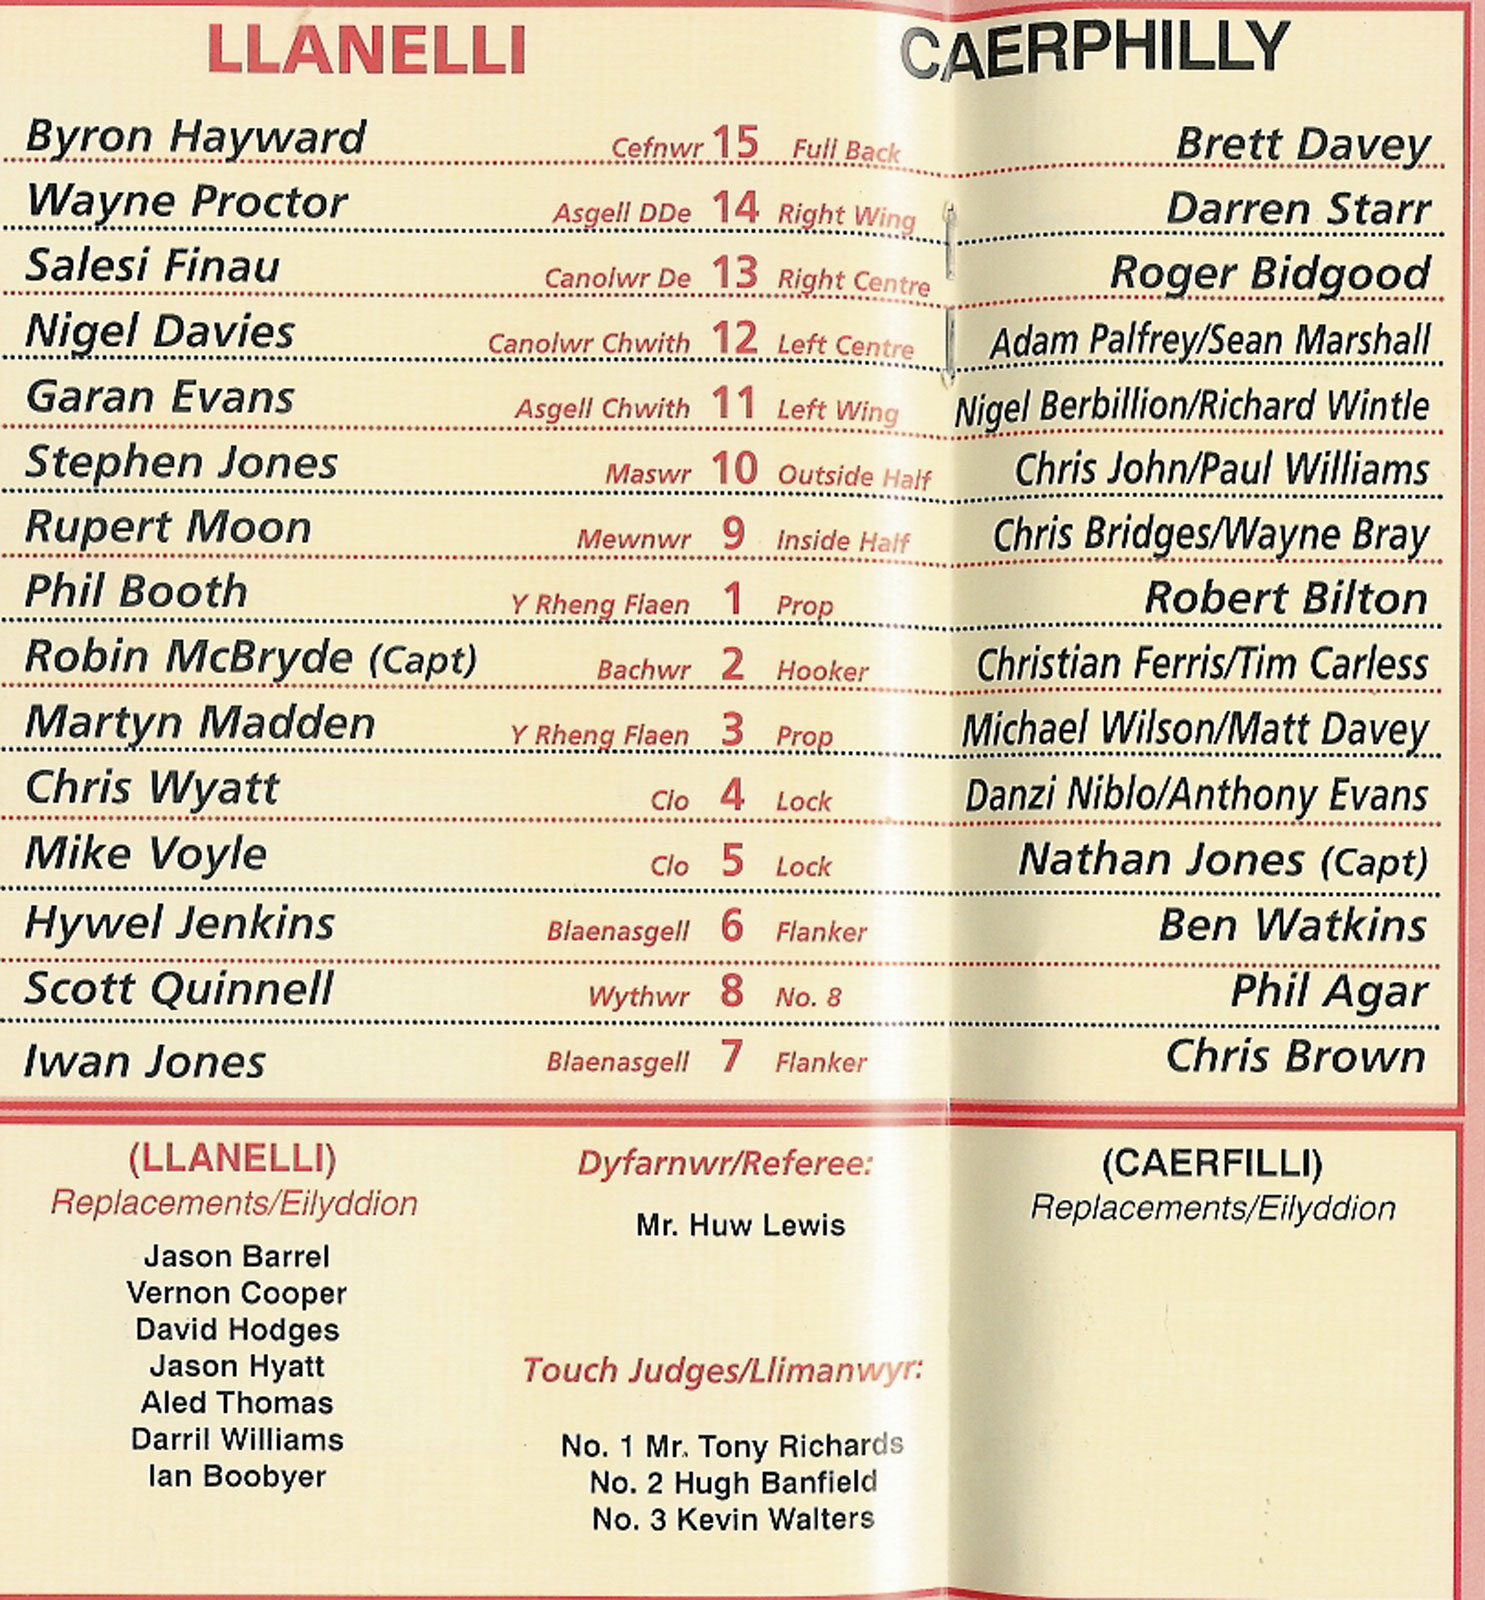 LLANELLI CAERPHILLY
Byron Hayward Cefnwr 15 Full Back Brett Davey
Wayne Proctor Asgell DDe 14 Right Wing Darren Starr
Salesi Finau Canolwr De 13 Right Centre Roger Bidgood
Nigel Davies Canolwr Chwith 12 Left Centre Adam Palfrey/Sean Marshall
Garan Evans Asgell Chwith 11 Left Wing Nigel Berbillion/Richard Wintle
Stephen Jones Maswr 10 Outside Half Chris John/Paul Williams
Rupert Moon Mewnwr 9 Inside Half Chris Bridges/Wayne Bray
Phil Booth Y Rheng Flaen 1 Prop Robert Bilton
Robin McBryde (Capt) Bachwr 2 Hooker Christian Ferris/Tim Carless
Martyn Madden Y Rheng Flaen 3 Prop Michael Wilson/Matt Davey
Chris Wyatt Clo 4 Lock Danzi Niblo/Anthony Evans
Mike Voyle Clo 5 Lock Nathan Jones (Capt)
Hywel Jenkins Blaenasgell 6 Flanker Ben Watkins
Scott Quinnell Wythwr 8 No. 8 Phil Agar
Iwan Jones Blaenasgell 7 Flanker Chris Brown
(LLANELLI)
Replacements/Eilyddion
Jason Barrel
Vernon Cooper
David Hodges
Jason Hyatt
Aled Thomas
Darril Williams
Ian Boobyer
Dyfarnwr/Referee:
Mr. Huw Lewis
Touch Judges/Llimanwyr:
No. 1 Mr. Tony Richards
No. 2 Hugh Banfield
No. 3 Kevin Walters
(CAERFILLI)
Replacements/Eilyddion